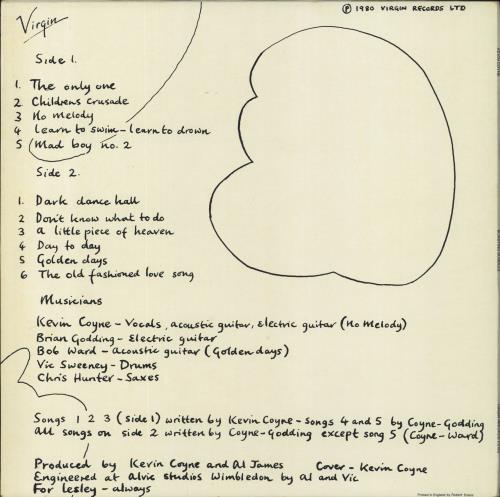 Virgin
℗ 1980 VIRGIN RECORDS LTD
Side 1.
1. The only one
2 Childrens crusade
3 No melody
4 learn to swim - learn to drown
5 Mad boy no. 2
Side 2.
1. Dark dance hall
2 Don't know what to do
3 a little piece of heaven
4 Day to day
5 Golden days
6 The old fashioned love song
Musicians
Kevin Coyne - Vocals, acoustic guitar, Electric guitar (No Melody)
Brian Godding - Electric guitar
Bob Ward - acoustic guitar (Golden days)
Vic Sweeney - Drums
Chris Hunter - Saxes
Songs 1 2 3 (side 1) written by Kevin Coyne - Songs 4 and 5 by Coyne-Godding
All songs on side 2 written by Coyne-Godding except song 5 (Coyne-Ward)
Produced by Kevin Coyne and Al James Cover - Kevin Coyne
Engineered at Alvic Studios Wimbledon by Al and Vic
For Lesley - always